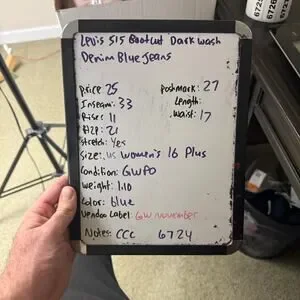 Levis 515 Bootcut Dark wash
Denim Blue Jeans
Price 25
Poshmark: 27
Inseam: 33
Length:
Rise: 11
Waist: 17
Hip: 21
Stretch: Yes
Size: US Women's 16 Plus
Condition: GWPO
Weight: 1.10
Color: Blue
Vendoo Label: GW November
Notes: CCC 6724
6728